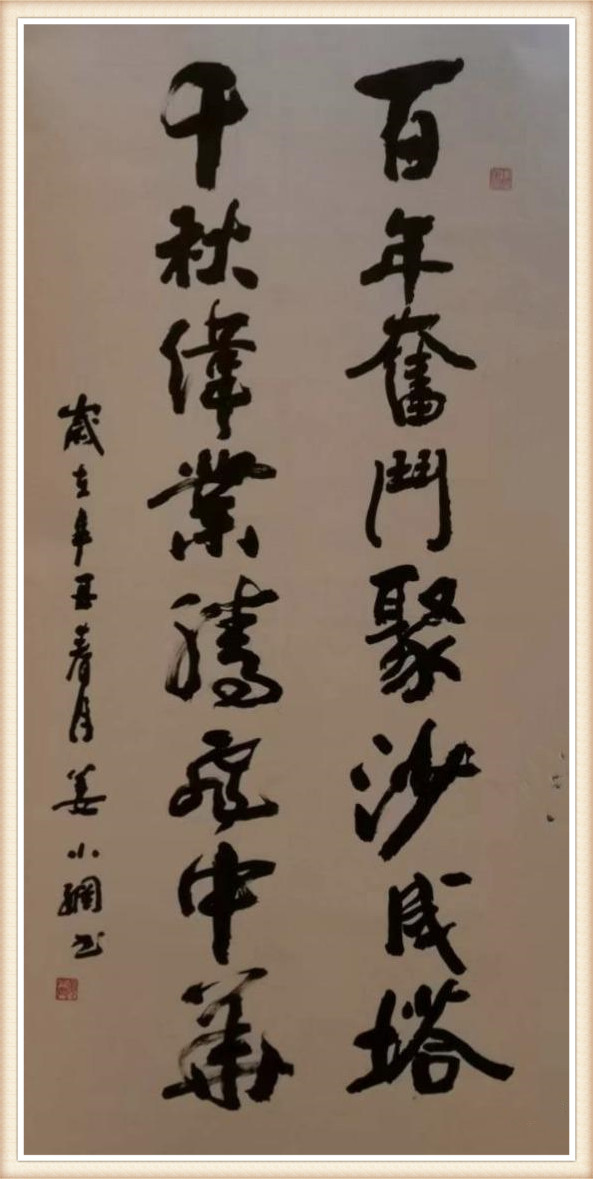 百年奮鬥聚沙成塔
千秋偉業騰飛中華
歲在辛丑春月姜小綱书